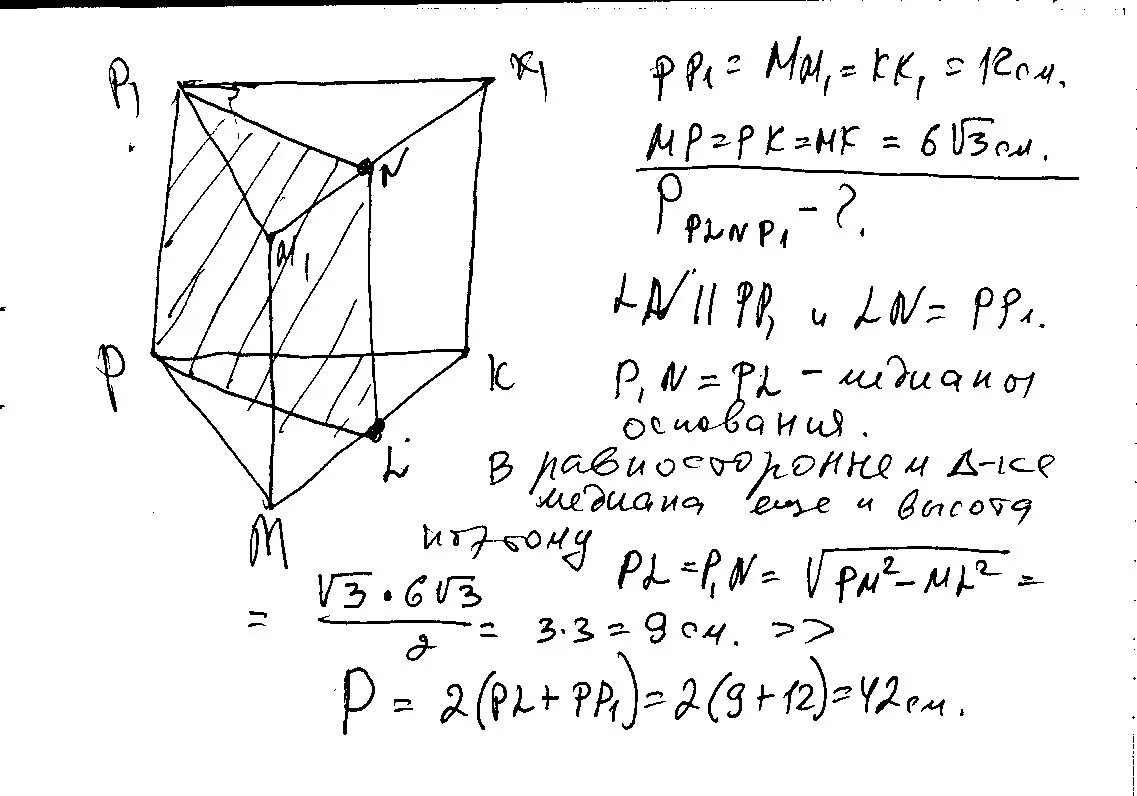 P₁
K₁
N
M₁
P
K
L
M
PP₁ = MM₁ = KK₁ = 12 см.
MP = PK = MK = 6√3 см.
P_PLNP₁ - ?
LN || PP₁ и LN = PP₁.
P₁N = PL - медианы
основания.
В равностороннем Δ-ке
медиана еще и высота
поэтому PL = P₁N = √(PM² - ML²) =
= √3 · 6√3 / 2 = 3·3 = 9 см. >>
P = 2(PL + PP₁) = 2(9+12) = 42 см.